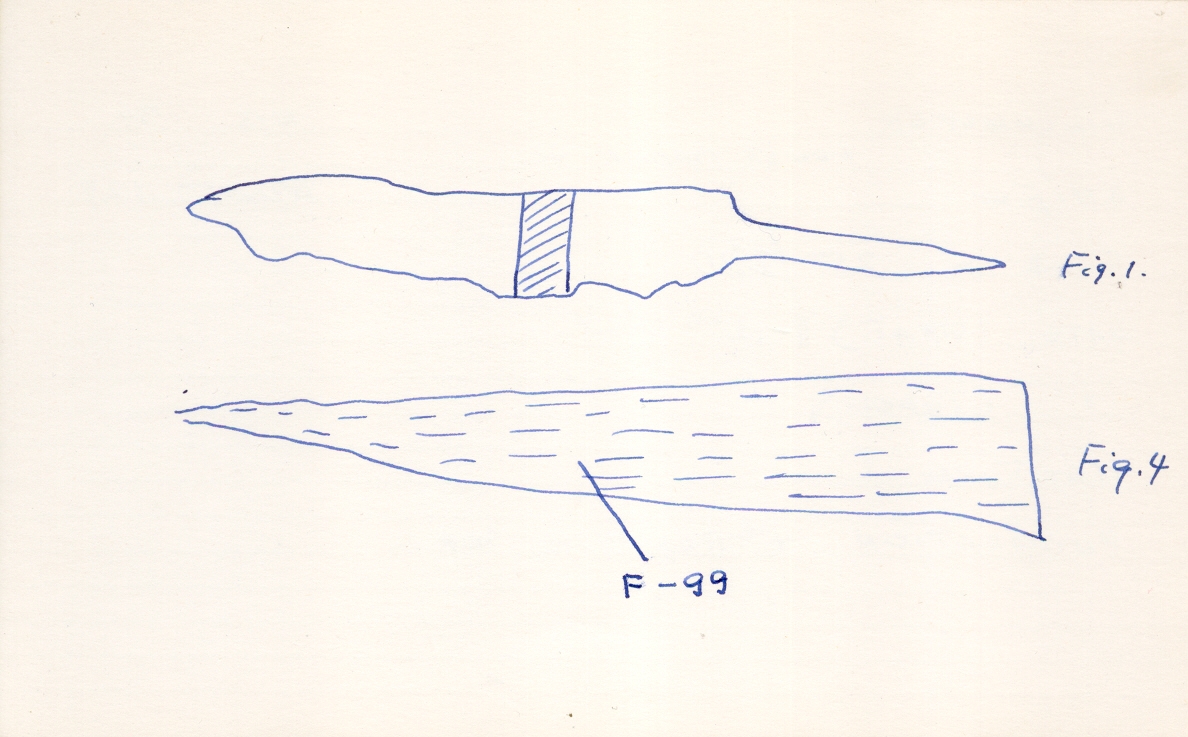 Fig.1.
Fig.4
F-99